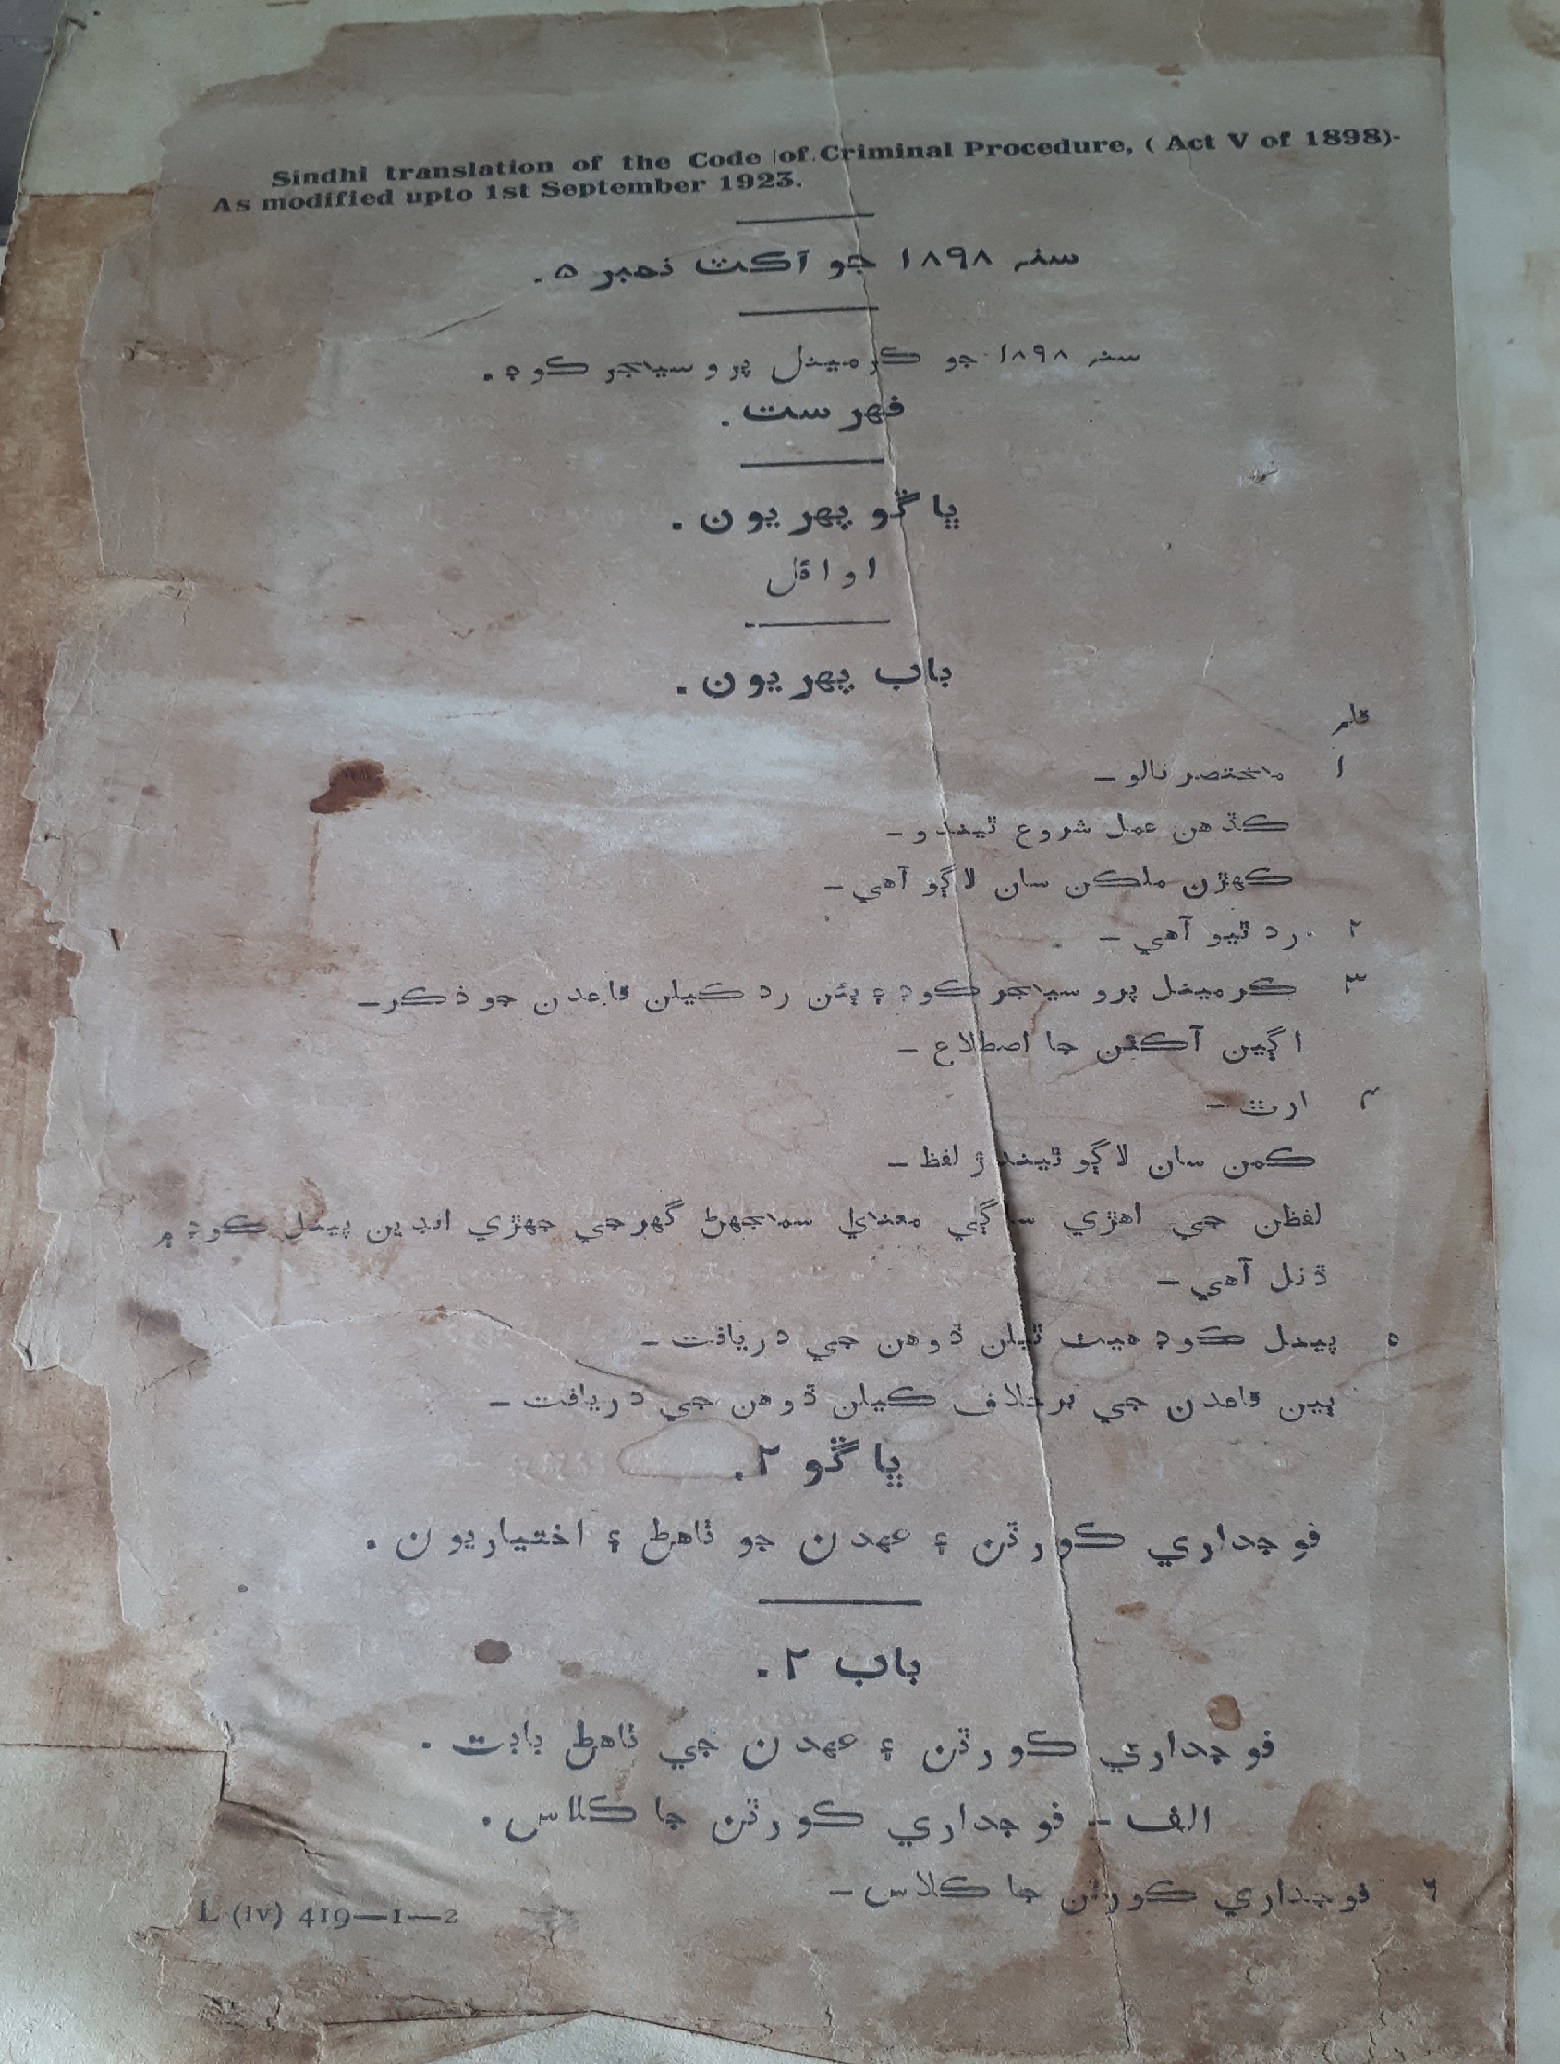 Sindhi translation of the Code of Criminal Procedure, ( Act V of 1898)-
As modified upto 1st September 1923.
سنہ ١٨٩٨ جو آڪٽ نمبر ٥.
سنہ ١٨٩٨ جو ڪرمينل پروسيجر ڪوڊ.
فهرست.
ڀاڱو پهريون.
اوائل
باب پهريون.
قلم
١ مختصر نالو—
ڪڏهن عمل شروع ٿيندو—
ڪهڙن ملڪن سان لاڳو آهي—
٢ رد ٿيو آهي—
٣ ڪرمينل پروسيجر ڪوڊ ۽ ٻئن رد ڪيلن قاعدن جو ذڪر—
اڳين آڪٽن جا اصطلاح—
٤ ارٿ—
ڪمن سان لاڳو ٿيندڙ لفظ—
لفظن جي اهڙي ساڳي معنيٰ سمجهڻ گهرجي جهڙي انڊين پينل ڪوڊ ۾
ڏنل آهي—
٥ پينل ڪوڊ هيٺ ٿيلن ڏوهن جي دريافت—
ٻين قاعدن جي برخلاف ڪيلن ڏوهن جي دريافت—
ڀاڱو ٢.
فوجداري ڪورٽن ۽ عهدن جو ٺاهڻ ۽ اختياريون.
باب ٢.
فوجداري ڪورٽن ۽ عهدن جي ٺاهڻ بابت.
الف — فوجداري ڪورٽن جا ڪلاس.
٦ فوجداري ڪورٽن جا ڪلاس—
L (iv) 419—1—2